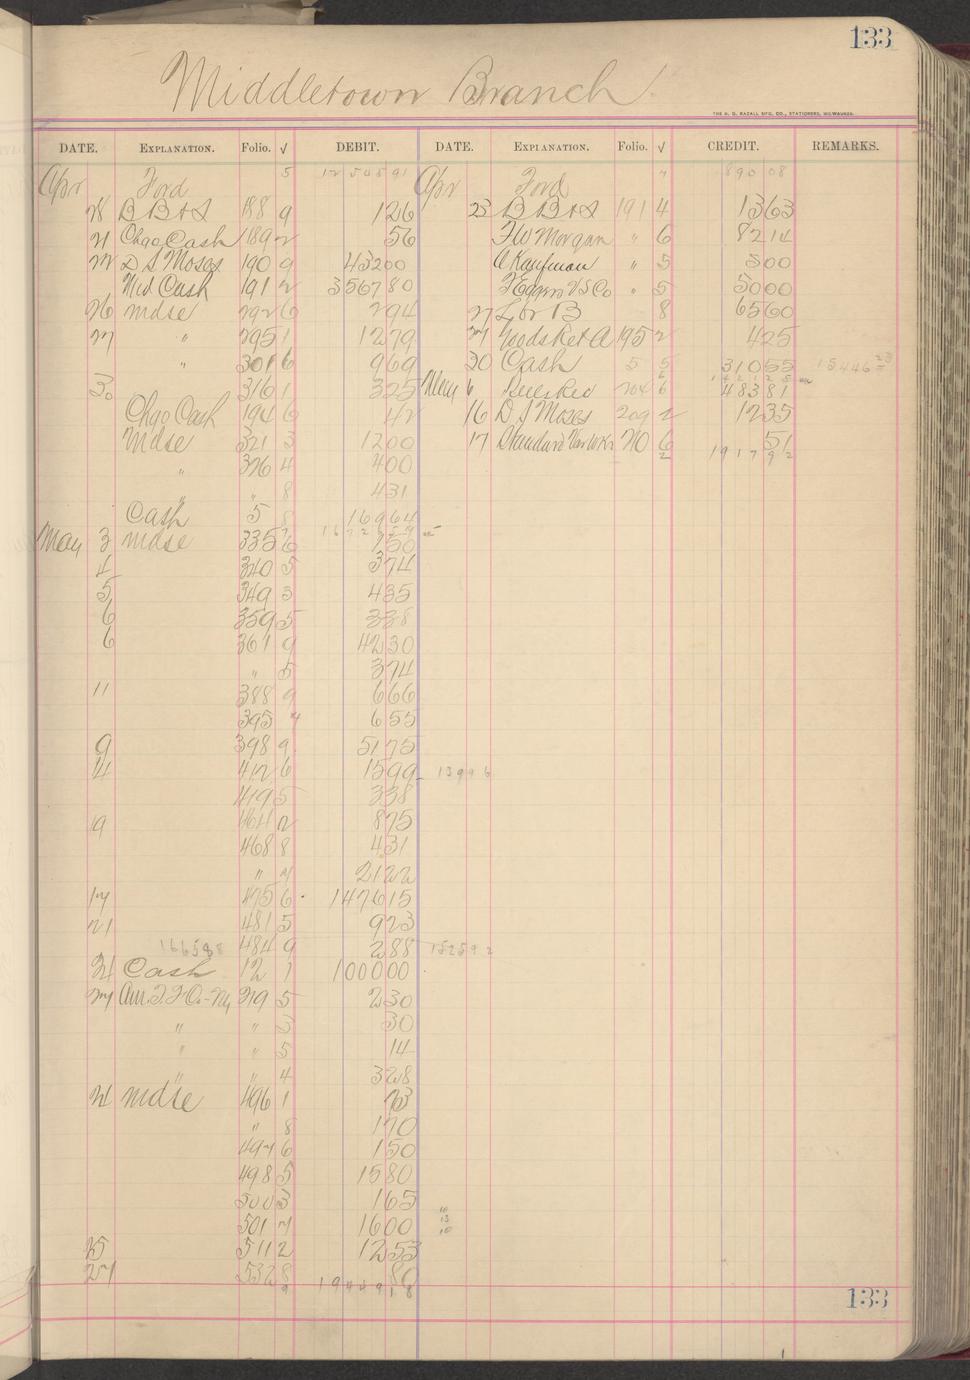 133
Middletown Branch.
THE H. G. RAZALL MFG. CO., STATIONERS, MILWAUKEE.
DATE. EXPLANATION. Folio. √ DEBIT. DATE. EXPLANATION. Folio. √ CREDIT. REMARKS.
Apr Ford 5 1254591 Apr Ford 89008
B B & S 188 9 126 23 B B & S 191 4 1363
21 Chgo Cash 189 2 56 F W Morgan " 6 8214
22 D S Moses 190 9 43200 C Kaufman " 5 500
Mid Cash 191 2 356780 " 5 5000
26 mdse 292 6 294 27 L or B 8 6560
27 " 295 1 1279 195 2 425
" 301 6 969 30 Cash 5 5 31055 15446
30 316 1 325 May 6 204 6 48381
Chgo Cash 194 6 42 16 D S Moses 209 2 1235
Mdse 321 3 1200 17 Standard 210 6 51
" 326 4 400 2 191792
" " 8 431
Cash 5 8 16964
May 3 mdse 335 6 150
4 340 5 374
5 349 3 435
6 359 5 338
6 361 9 4230
" 5 374
11 388 9 666
395 4 655
9 398 9 5175
14 412 6 1599 13996
419 5 338
19 464 2 875
468 8 431
" 7 2122
17 475 6 147615
21 481 5 923
166588 484 9 288 152592
24 Cash 12 1 100000
219 5 230
" " 3 30
" " 5 14
" " 4 328
24 mdse 496 1 73
" 8 170
497 6 150
498 5 1580
500 3 165
501 7 1600
25 511 2 1253
27 532 8
133